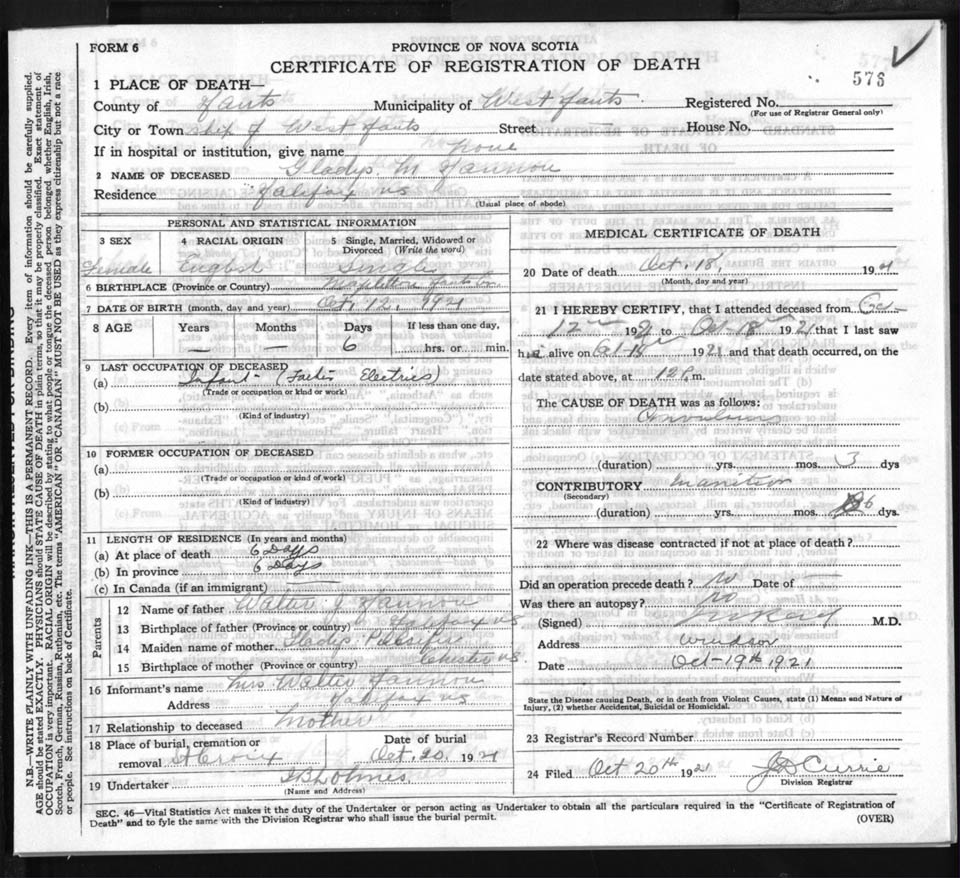 FORM 6
PROVINCE OF NOVA SCOTIA
CERTIFICATE OF REGISTRATION OF DEATH
576
1 PLACE OF DEATH—
County of Hants Municipality of West Hants Registered No.
(For use of Registrar General only)
City or Township of West Hants Street — House No.
If in hospital or institution, give name none
2 NAME OF DECEASED Gladys M Hannon
Residence Halifax NS
(Usual place of abode)
PERSONAL AND STATISTICAL INFORMATION
3 SEX 4 RACIAL ORIGIN 5 Single, Married, Widowed or Divorced (Write the word)
Female English Single
6 BIRTHPLACE (Province or Country)
7 DATE OF BIRTH (month, day and year) Oct, 12, 1921
8 AGE Years Months Days If less than one day,
— — 6 hrs. or min.
9 LAST OCCUPATION OF DECEASED
(a) Infant (Father Electrics)
(Trade or occupation or kind or work)
(b)
(Kind of industry)
10 FORMER OCCUPATION OF DECEASED
(a)
(Trade or occupation or kind of work)
(b)
(Kind of industry)
11 LENGTH OF RESIDENCE (In years and months)
(a) At place of death 6 Days
(b) In province 6 Days
(c) In Canada (if an immigrant) —
Parents
12 Name of father Walter J Hannon
13 Birthplace of father (Province or country) Halifax NS
14 Maiden name of mother Gladys
15 Birthplace of mother (Province or country) Chester NS
16 Informant's name Mrs Walter Hannon
Address Halifax NS
17 Relationship to deceased Mother
18 Place of burial, cremation or removal St Croix Date of burial Oct. 20, 1921
19 Undertaker Holmes
(Name and Address)
MEDICAL CERTIFICATE OF DEATH
20 Date of death Oct. 18, 1921
(Month, day and year)
21 I HEREBY CERTIFY, that I attended deceased from Oct
12 192 to Oct 18 1921 that I last saw
h alive on Oct 18 1921 and that death occurred, on the
date stated above, at 12 P. m.
The CAUSE OF DEATH was as follows:
(duration) yrs. mos. 3 dys
CONTRIBUTORY Inanition
(Secondary)
(duration) yrs. mos. 6 dys.
22 Where was disease contracted if not at place of death?
Did an operation precede death? No Date of —
Was there an autopsy? No
(Signed) M.D.
Address Windsor
Date Oct-19th 1921
State the Disease causing Death, or in death from Violent Causes, state (1) Means and Nature of Injury, (2) whether Accidental, Suicidal or Homicidal.
23 Registrar's Record Number
24 Filed Oct 20th 1921 Currie
Division Registrar
SEC. 46—Vital Statistics Act makes it the duty of the Undertaker or person acting as Undertaker to obtain all the particulars required in the "Certificate of Registration of
Death" and to fyle the same with the Division Registrar who shall issue the burial permit.
(OVER)
N.B.—WRITE PLAINLY WITH UNFADING INK—THIS IS A PERMANENT RECORD. Every item of information should be carefully supplied.
AGE should be stated EXACTLY. PHYSICIANS should STATE CAUSE OF DEATH in plain terms, so that it may be properly classified. Exact statement of
OCCUPATION is very important. RACIAL ORIGIN will be described by stating to what people or tongue the deceased person belonged whether English, Irish,
Scotch, French, German, Russian, Ruthenian, etc. The terms "AMERICAN" or "CANADIAN" MUST NOT BE USED as they express citizenship but not a race
or people. See instructions on back of Certificate.